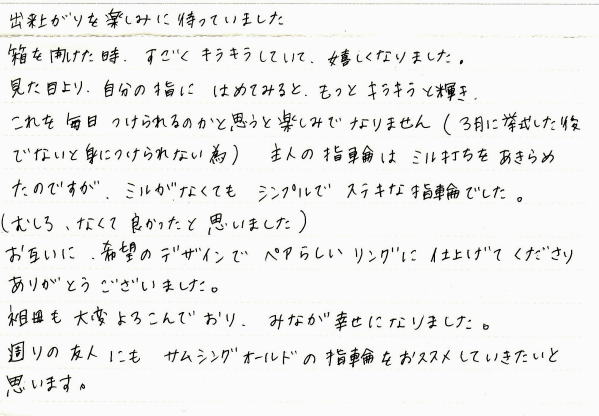 出来上がりを楽しみに待っていました
箱を開けた時、すごくキラキラしていて、嬉しくなりました。
見た目より、自分の指に はめてみると、もっとキラキラと輝き、
これを毎日つけられるのかと思うと楽しみでなりません(3月に挙式した後
でないと身につけられない為) 主人の指輪はミル打ちをあきらめ
たのですが、ミルがなくても シンプルで ステキな指輪でした。
(むしろ、なくて良かったと思いました)
お互いに、希望のデザインで ペアらしい リングに仕上げてくださり
ありがとうございました。
祖母も大変よろこんでおり、みなが幸せになりました。
周りの友人にも サムシングオールドの指輪をおススメしていきたいと
思います。